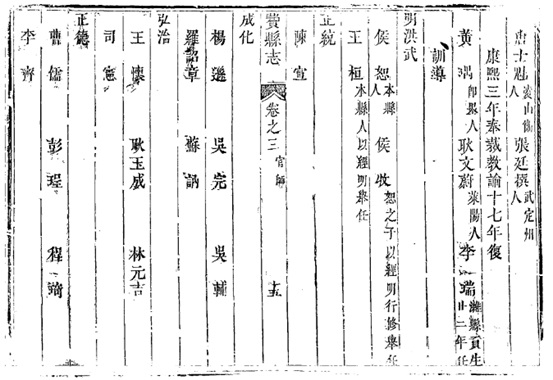 唐士 人 張廷撰武定州人
康熙三年奉裁教諭十七年復
黃 卽墨人 耿文蔚萊陽人 李 瑞濰縣貢生廿二年任
訓導
明洪武
侯 恕本縣 侯 牧恕之子以經明行修舉任
王 桓本縣人以經明舉任
正統
陳 宣
費縣志 卷之三官師 十五
成化
楊 遜 吳 完 吳 輔
羅詔章 蘇 訥
弘治
王 懷 耿玉威 林元吉
司 憲
正德
曹 儒 彭 珵 程
李 齊